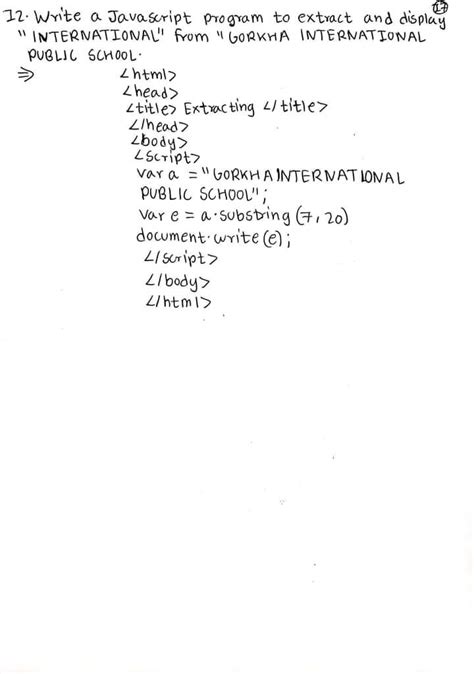 17
12. Write a Javascript program to extract and display
"INTERNATIONAL" from "GORKHA INTERNATIONAL
PUBLIC SCHOOL.
⇒ <html>
<head>
<title> Extracting </title>
</head>
<body>
<script>
var a = "GORKHA INTERNATIONAL
PUBLIC SCHOOL";
var e = a.substring (7, 20)
document.write (e);
</script>
</body>
</html>